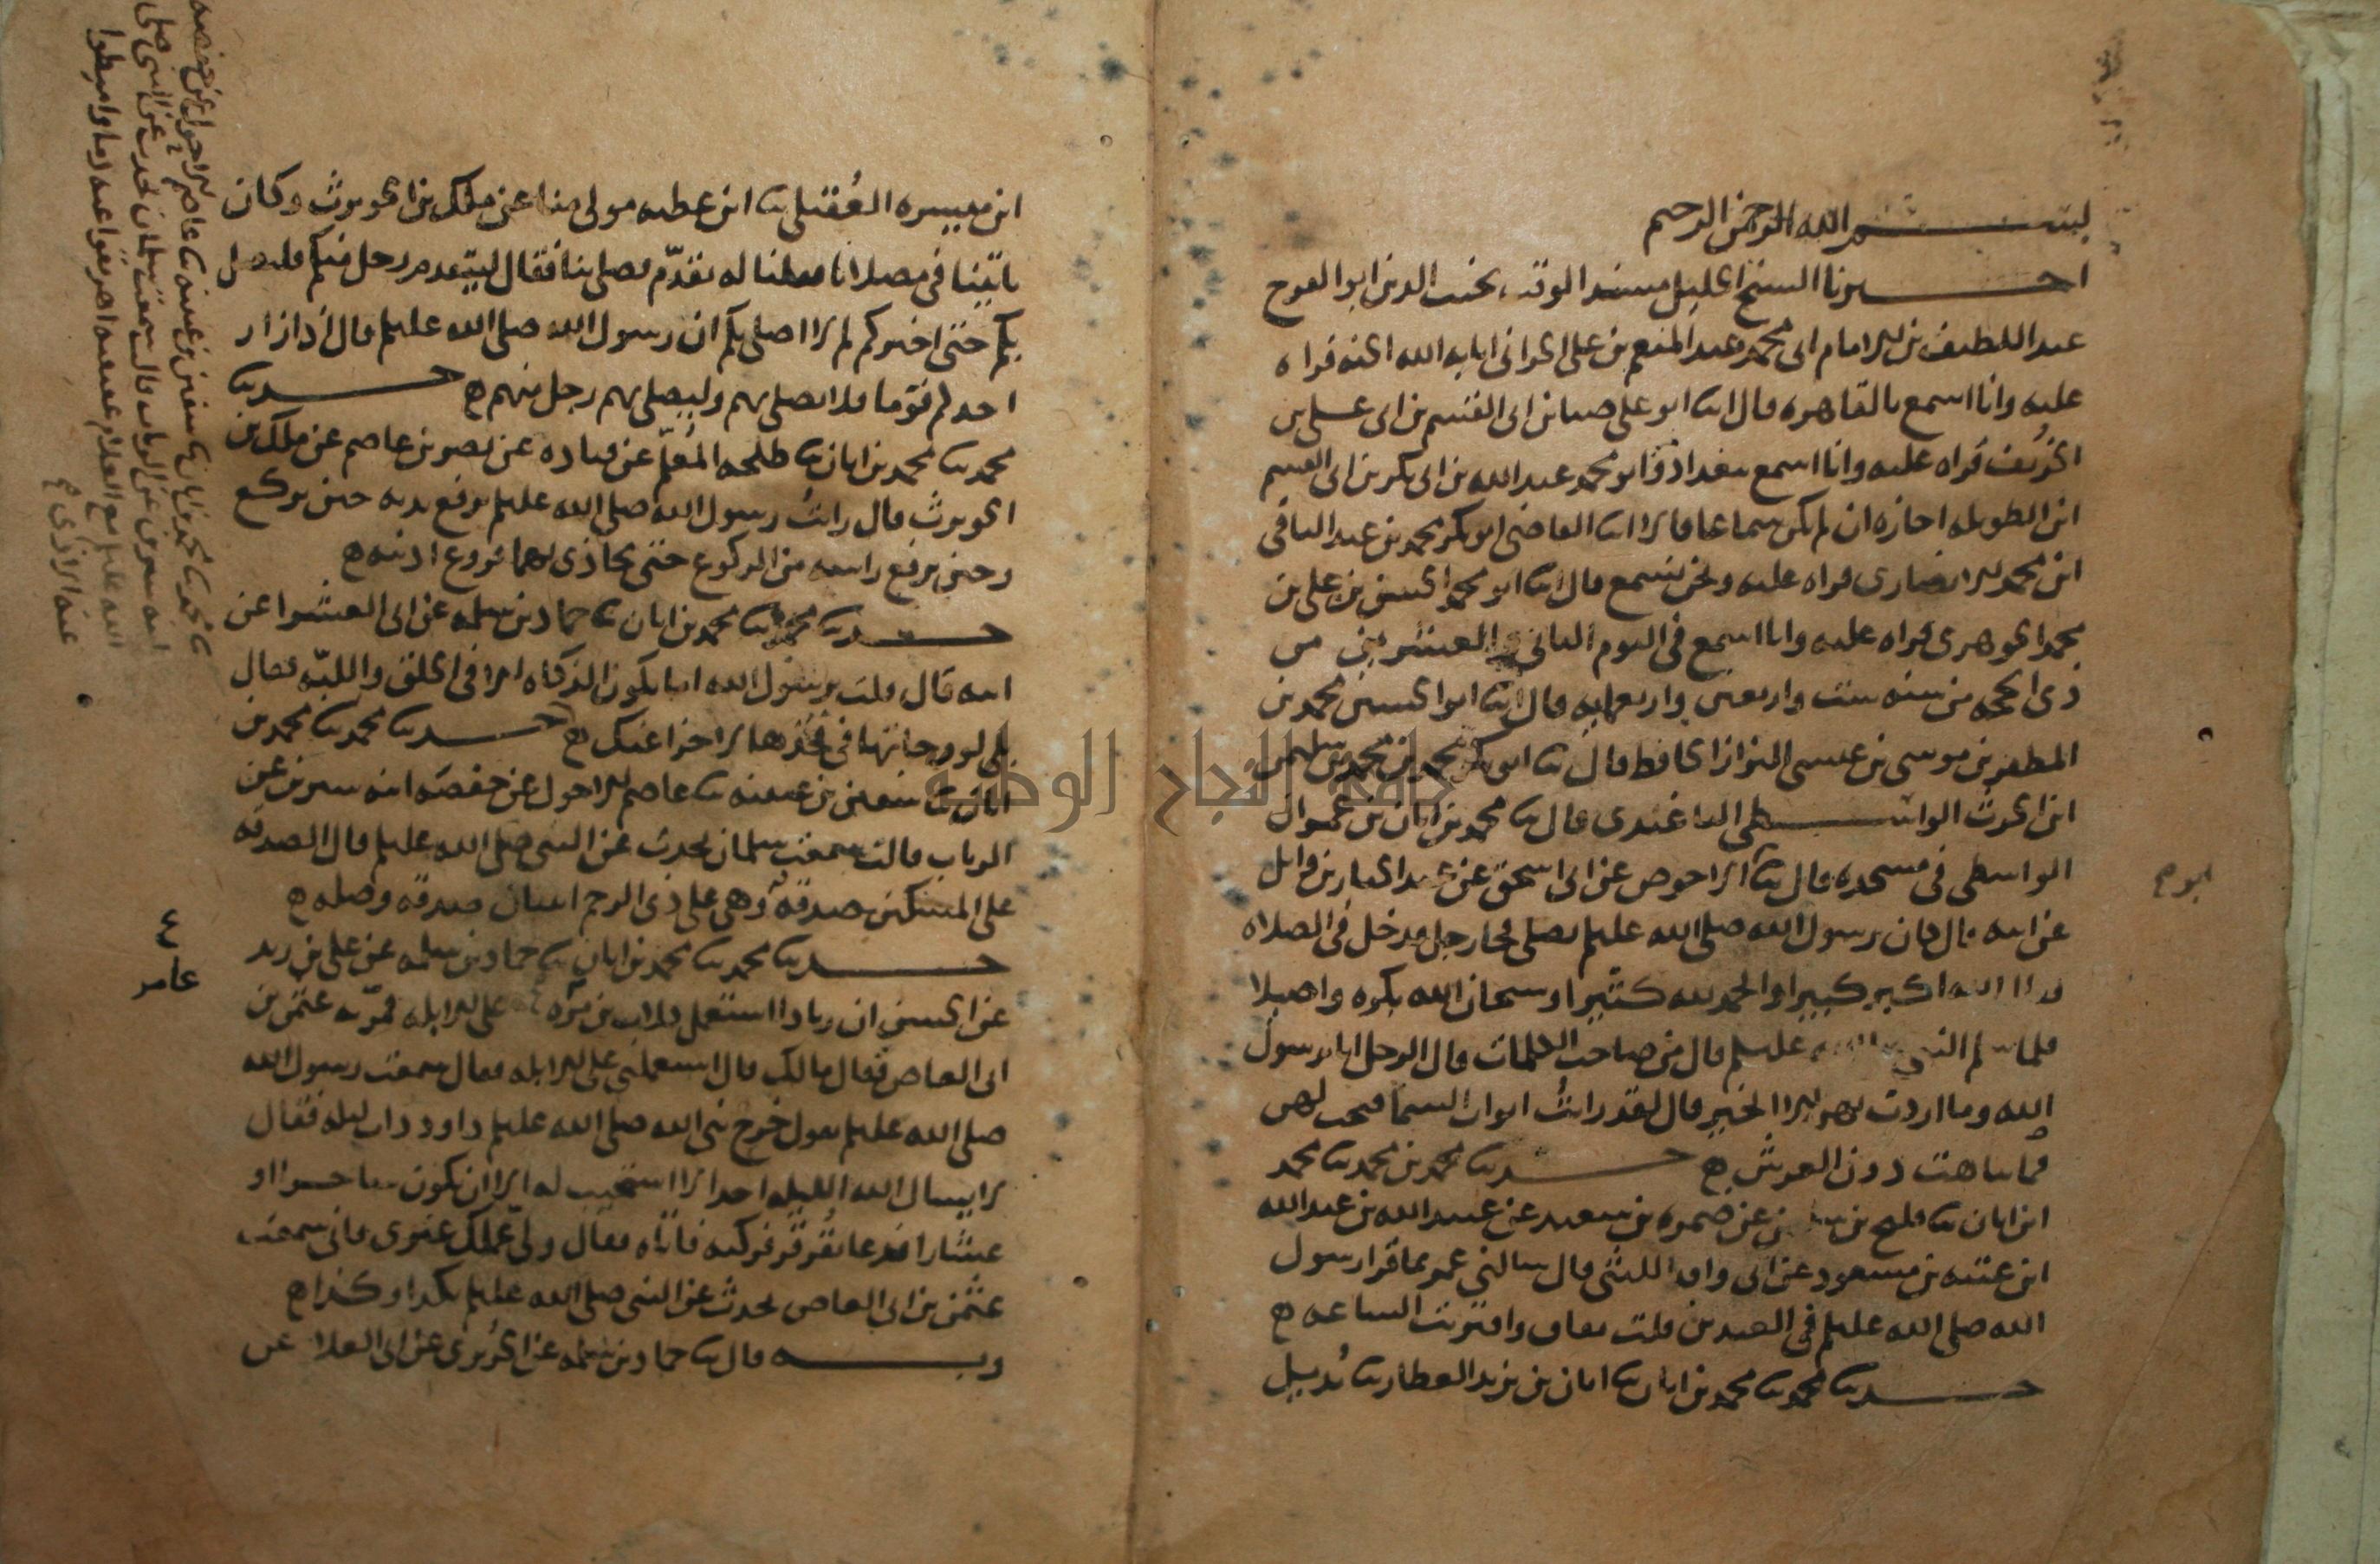 بسم الله الرحمن الرحيم
اخبرنا الشيخ الجليل مسند الوقت نجيب الدين ابو الفرج
عبد اللطيف بن الامام ابي محمد عبد المنعم بن علي الحراني اثابه الله الجنة قراه
عليه وانا اسمع بالقاهره قال انا ابو علي ضيا بن ابي القسم بن ابي علي بن
الخريف قراه عليه وانا اسمع ببغداد وابو محمد عبد الله بن ابي بكر بن ابي القسم
ابن الطويله اجازه ان لم يكن سماعا قالا انا القاضي ابو بكر محمد بن عبد الباقي
ابن محمد الانصاري قراه عليه ونحن نسمع قال انا ابو محمد الحسن بن علي بن
محمد الجوهري قراه عليه وانا اسمع في اليوم الثاني والعشرين من
ذي الحجه من سنه ست واربعين واربعمايه قال انا ابو الحسين محمد بن
المظفر بن موسى بن عيسى البزاز الحافظ قال ثنا ابو بكر محمد بن محمد بن سليمن
ابن الحرث الواسطي الباغندي قال ثنا محمد بن ابان بن عمران
الواسطي في مسجده قال ثنا ابو الاحوص عن ابي اسحق عن عبد الجبار بن وائل
عن ابيه قال كان رسول الله صلى الله عليه وسلم يصلي فجا رجل فدخل في الصلاه
فقال الله اكبر كبيرا والحمد لله كثيرا وسبحان الله بكره واصيلا
فلما سلم النبي صلى الله عليه وسلم قال من صاحب الكلمات قال الرجل انا يرسول
الله وما اردت بهن الا الخير قال لقد رايت ابواب السما فتحت لهن
فما تناهت دون العرش ه حدثنا محمد بن محمد ثنا محمد
ابن ابان ثنا فليح بن سليمن عن ضمره بن سعيد عن عبيد الله بن عبد الله
ابن عتبه بن مسعود عن ابي واقد الليثي قال سالني عمر بما قرا رسول
الله صلى الله عليه وسلم في العيدين قلت بقاف واقتربت الساعه ه
حدثنا محمد ثنا محمد بن ابان ثنا ابان بن يزيد العطار ثنا بديل
ابن ميسره العقيلي ثنا ابن عطيه مولى منا عن ملك بن الحويرث وكان
ياتينا في مصلانا فقلنا له تقدم فصل بنا فقال ليتقدم رجل منكم فليصل
بكم حتى اخبركم لم لا اصلي بكم ان رسول الله صلى الله عليه وسلم قال اذا زار
احدكم قوما فلا يصلي بهم وليصلي بهم رجل منهم ه حدثنا
محمد ثنا محمد بن ابان ثنا طلحه المعلم عن قتاده عن نصر بن عاصم عن ملك بن
الحويرث قال رايت رسول الله صلى الله عليه وسلم يرفع يديه حين يركع
وحين يرفع راسه من الركوع حتى يحاذي بهما فروع اذنيه ه
حدثنا محمد ثنا محمد بن ابان ثنا حماد بن سلمه عن ابي العشرا عن
ابيه قال قلت يرسول الله اما يكون الذكاه الا في الحلق واللبه فقال
بلى لو وجاتها في فخذها لاجزا عنك ه حدثنا محمد ثنا محمد بن
ابان ثنا سفين بن عيينه ثنا عاصم الاحول عن حفصه ابنه سيرين عن
الرباب قالت سمعت سلمان يحدث عن النبي صلى الله عليه وسلم قال الصدقه
على المسكين صدقة وهي على ذي الرحم اثنان صدقه وصله ه
حدثنا محمد ثنا محمد بن ابان ثنا حماد بن سلمه عن علي بن زيد
عن الحسن ان زيادا استعمل كلاب بن مره على الابله فمر به عثمن بن
ابي العاص فقال مالك قال استعملني على الابله فقال سمعت رسول الله
صلى الله عليه وسلم يقول خرج نبي الله صلى الله عليه وسلم داود ذات ليله فقال
لا يسال الله الليله احد الا استجيب له الا ان يكون ساحرا او
عشارا فدعا بقرقر فركبه فاتاه فقال ول عملك غيري فاني سمعت
عثمن بن ابي العاص يحدث عن النبي صلى الله عليه وسلم بكذا وكذا ه
وبه قال ثنا حماد بن سلمه عن الجريري عن ابي العلا عن
ثنا محمد ثنا محمد بن ابان ثنا سفين بن عيينه ثنا عاصم الاحول عن حفصه
ابنه سيرين عن الرباب قالت سمعت سلمان يحدث عن النبي صلى
الله عليه وسلم مع الغلام عقيقته اهريقوا عنه دما واميطوا
عنه الاذى ه
عامر
جامعة النجاح الوطنية